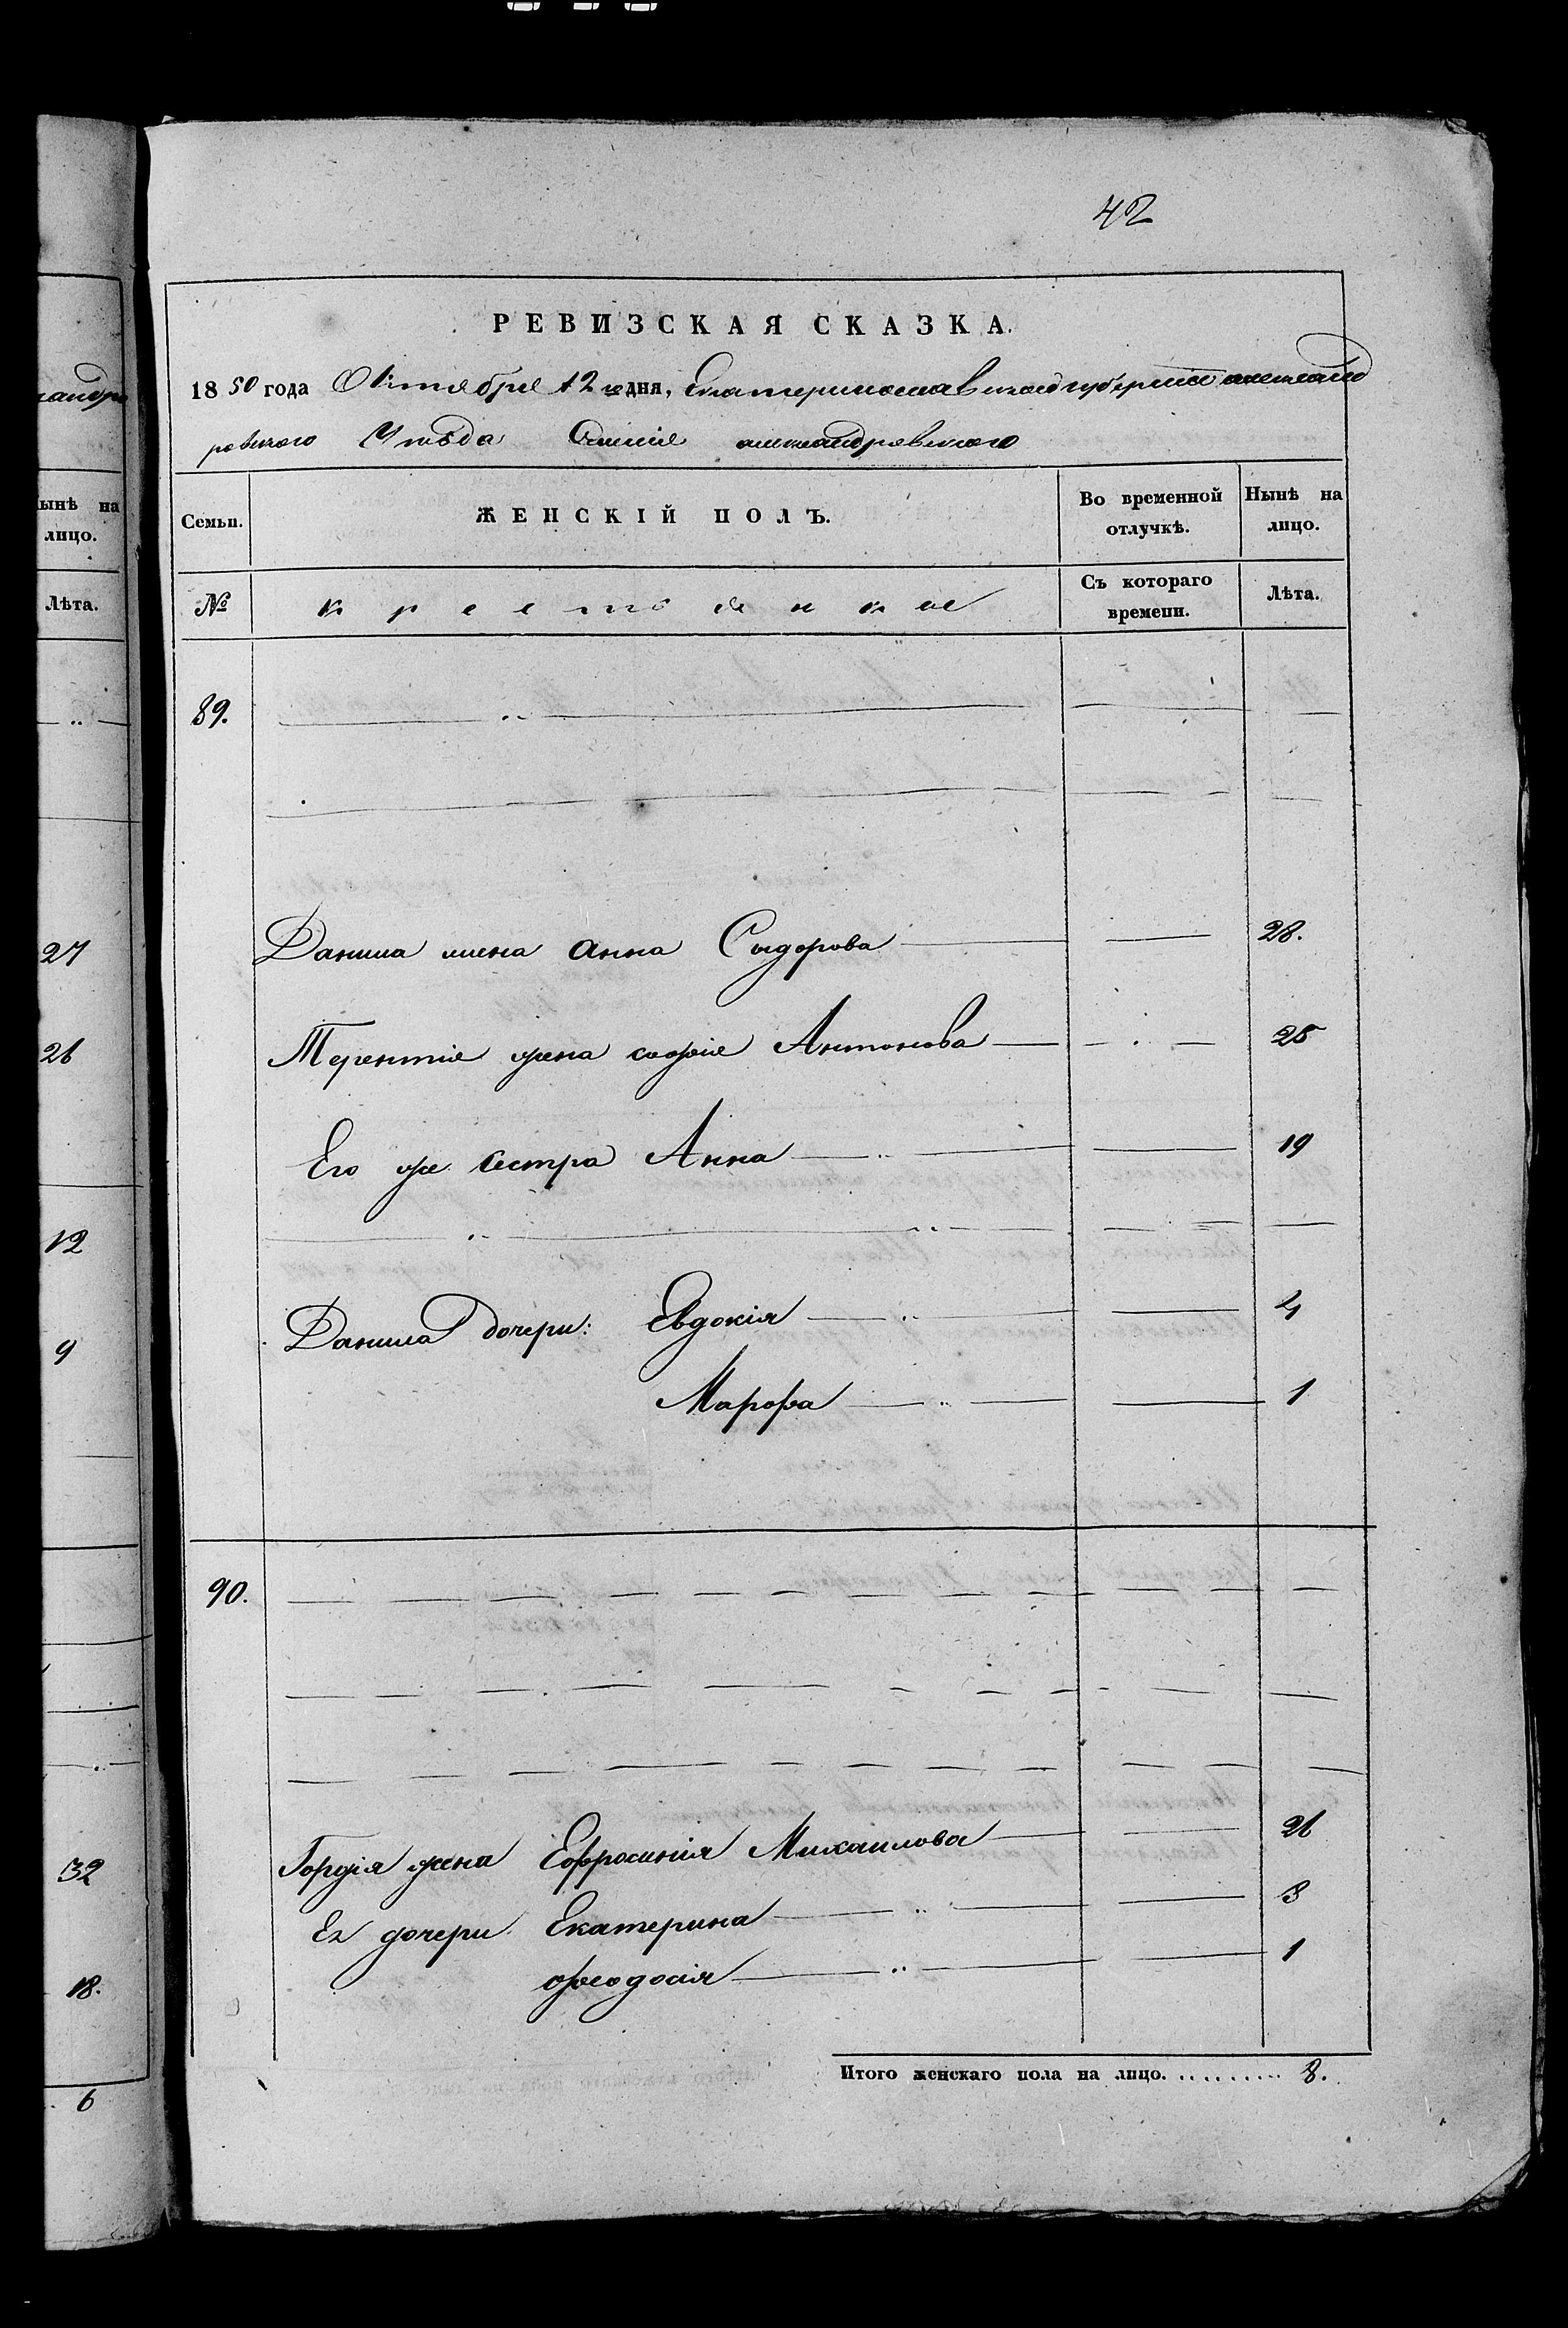 андро
ынѣ на
лицо.
Лѣта.
27
26
12
9
32
18.
6
42
РЕВИЗСКАЯ СКАЗКА.
1850 года Октября 12 го дня, Екатеринославской губерніи александ
ровского Уѣзда Селенія александровского
Семьи. ЖЕНСКІЙ ПОЛЪ. Во временной отлучкѣ. Нынѣ на лицо.
№ крестьянки Съ котораго времени. Лѣта.
89.
Данила жена Анна Сидорова 28.
Терентія жена софія Антонова 25
Его же сестра Анна 19
Данила дочери: Евдокія 4
Марфа 1
90.
Гордія жена Ефросинія Михаилова 26
Ея дочери Екатерина 3
феодосія 1
Итого женскаго пола на лицо. 8.